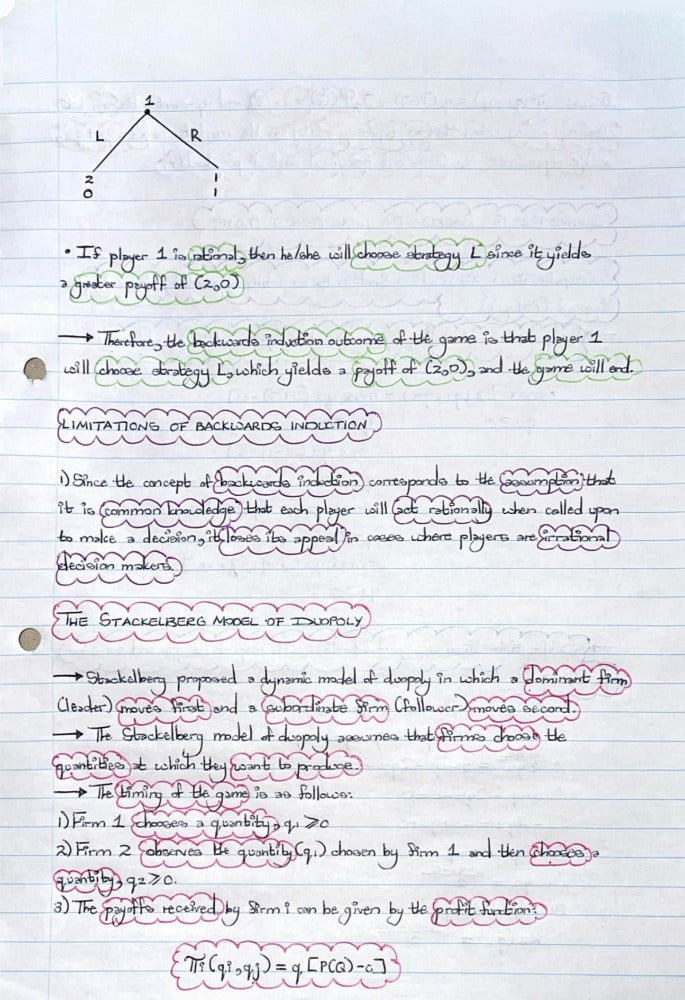 1
L R
2 1
0 1
• If player 1 is rational, then he/she will choose strategy L since it yields
a greater payoff of (2,0)
→ Therefore, the backwards induction outcome of the game is that player 1
will choose strategy L, which yields a payoff of (2,0), and the game will end.
LIMITATIONS OF BACKWARDS INDUCTION
1) Since the concept of backwards induction corresponds to the assumption that
it is common knowledge that each player will act rationally when called upon
to make a decision, it loses its appeal in cases where players are irrational
decision makers.
THE STACKELBERG MODEL OF DUOPOLY
→ Stackelberg proposed a dynamic model of duopoly in which a dominant firm
(leader) moves first and a subordinate firm (follower) moves second.
→ The Stackelberg model of duopoly assumes that firms choose the
quantities at which they want to produce.
→ The timing of the game is as follows:
1) Firm 1 chooses a quantity, q₁ ≥0
2) Firm 2 observes the quantity (q₁) chosen by firm 1 and then chooses a
quantity, q₂ ≥0.
3) The payoffs received by firm i can be given by the profit function:
πi (qi, qj) = q [P(Q) - c]